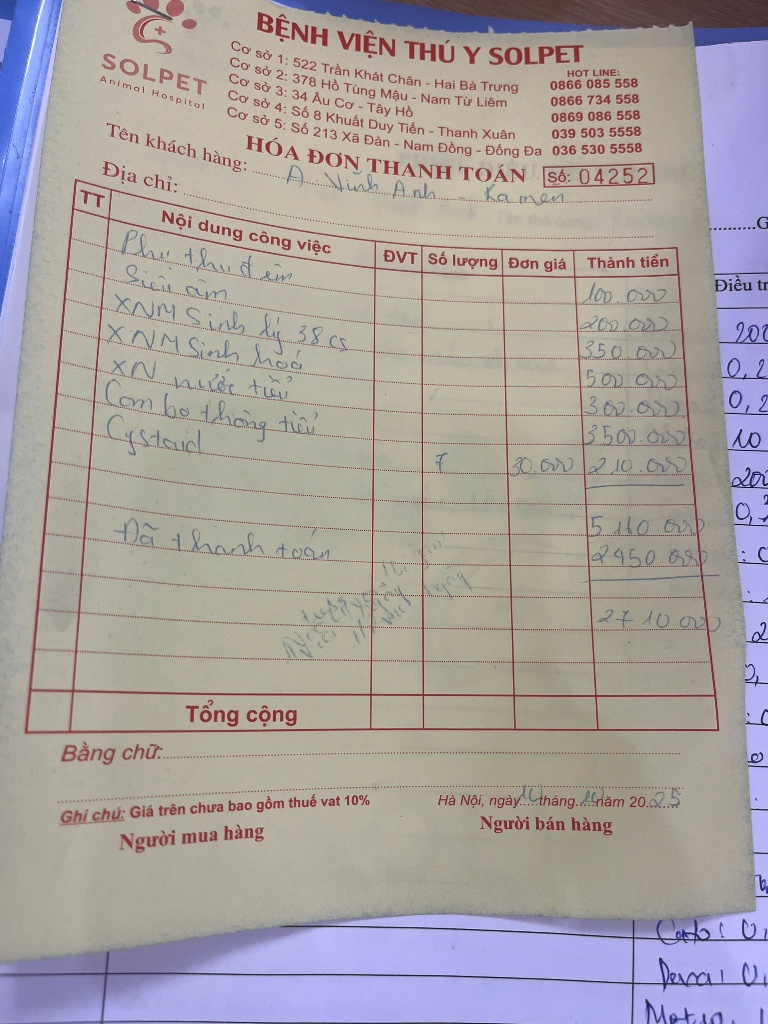 SOLPET
Animal Hospital
BỆNH VIỆN THÚ Y SOLPET
Cơ sở 1: 522 Trần Khát Chân - Hai Bà Trưng
Cơ sở 2: 378 Hồ Tùng Mậu - Nam Từ Liêm
Cơ sở 3: 34 Âu Cơ - Tây Hồ
Cơ sở 4: Số 8 Khuất Duy Tiến - Thanh Xuân
Cơ sở 5: Số 213 Xã Đàn - Nam Đồng - Đống Đa
HOT LINE:
0866 085 558
0866 734 558
0869 086 558
039 503 5558
036 530 5558
HÓA ĐƠN THANH TOÁN Số: 04252
Tên khách hàng: A Vĩnh Anh - Ramen
Địa chỉ:
TT Nội dung công việc ĐVT Số lượng Đơn giá Thành tiền
Phụ thu đêm 100.000
Siêu âm 200.000
XNM Sinh lý 38 cs 350.000
XNM Sinh hoá 500 000
XN nước tiểu 300.000
Combo thông tiểu 3500.000
Cystaid 7 30.000 210.000
5 160 000
Đã thanh toán 2450 000
2710 000
Tổng cộng
Bằng chữ:
Ghi chú: Giá trên chưa bao gồm thuế vat 10%
Hà Nội, ngày tháng 10 năm 2025
Người mua hàng Người bán hàng
Điều tr
200
0,2
0,2
10
200